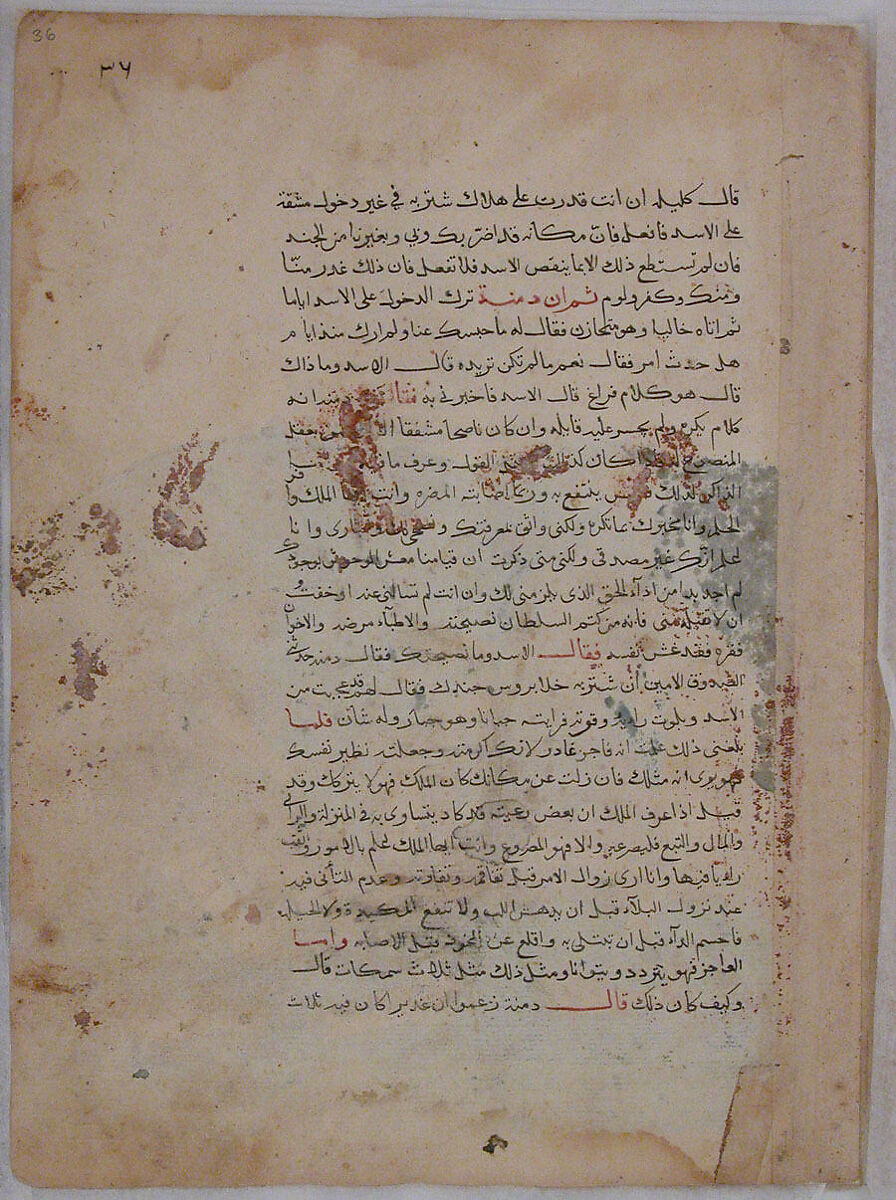 36
٣٦
قال كليله ان انت قدرت على هلاك شتربه في غير دخول مشقة
على الاسد فافعل فان مكانه قد اضر بك وبي وبغيرنا من الجند
فان لم تستطع ذلك الا بما ينقص الاسد فلا تفعل فان ذلك غدر منا
ومنك وكفر ولوم ثم ان دمنة ترك الدخول على الاسد اياما
ثم اتاه خاليا وهو متحازن فقال له ما حبسك عنا ولم ارك منذ ايام
هل حدث امر فقال نعم ما لم تكن تريده قال الاسد وما ذاك
قال هو كلام فراغ قال الاسد فاخبرني به فقال دمنه انه
كلام يكره ولم يجسر عليه قايله وان كان ناصحا مشفقا بعقل
المنصوح كان كذلك القول وعرف ما فيه
لذلك ينتفع به وربما اصابته المضره وانت ايها الملك
وانا مخبرك بما تكره ولكني واثق بمعرفتك وانا
لحلم انك غير مصدقي ولكني متى ذكرت ان قيامنا معشر الوحوش بوجودك
لم اجد بدا من اداء الحق الذي يلزمني لك وان انت لم تسالني عنه او خفت
ان لا تقبله مني فانه من كتم السلطان نصيحته والاطباء مرضه والاخوان
فقره فقد غش نفسه فقال الاسد وما نصيحتك فقال دمنه حدثني
الصدوق الامين ان شتربه خلا بروس جندك فقال لهم قد عجبت من
الاسد وبلوت رايه وقوته فرايته جبانا وهو جبار وله شان فلما
بلغني ذلك علمت انه فاجر غادر لانك اكرمته وجعلته نظير نفسك
فهو يرى انه مثلك فان زلت عن مكانك كان الملك فهو لا يتركك وقد
قيل اذا عرف الملك ان بعض رعيته قد كاد يتساوى به في المنزلة والراي
والمال والتبع فليصرعه والا فهو المصروع وانت ايها الملك لحلم بالامور
رايا فيها وانا ارى زوال الامر قبل تفاقمه وتفاوته وعدم التأنى فيه
عند نزول البلاء قبل ان يدهش اللب ولا تنفع المكيدة ولا الحيل
فاحسم الداء قبل ان تبتلى به واقلع عن قبل الاصابه واما
العاجز فهو يتردد ويتوانا ومثل ذلك مثل ثلاث سمكات قال
وكيف كان ذلك قال دمنة زعموا ان غديرا كان فيه ثلاث